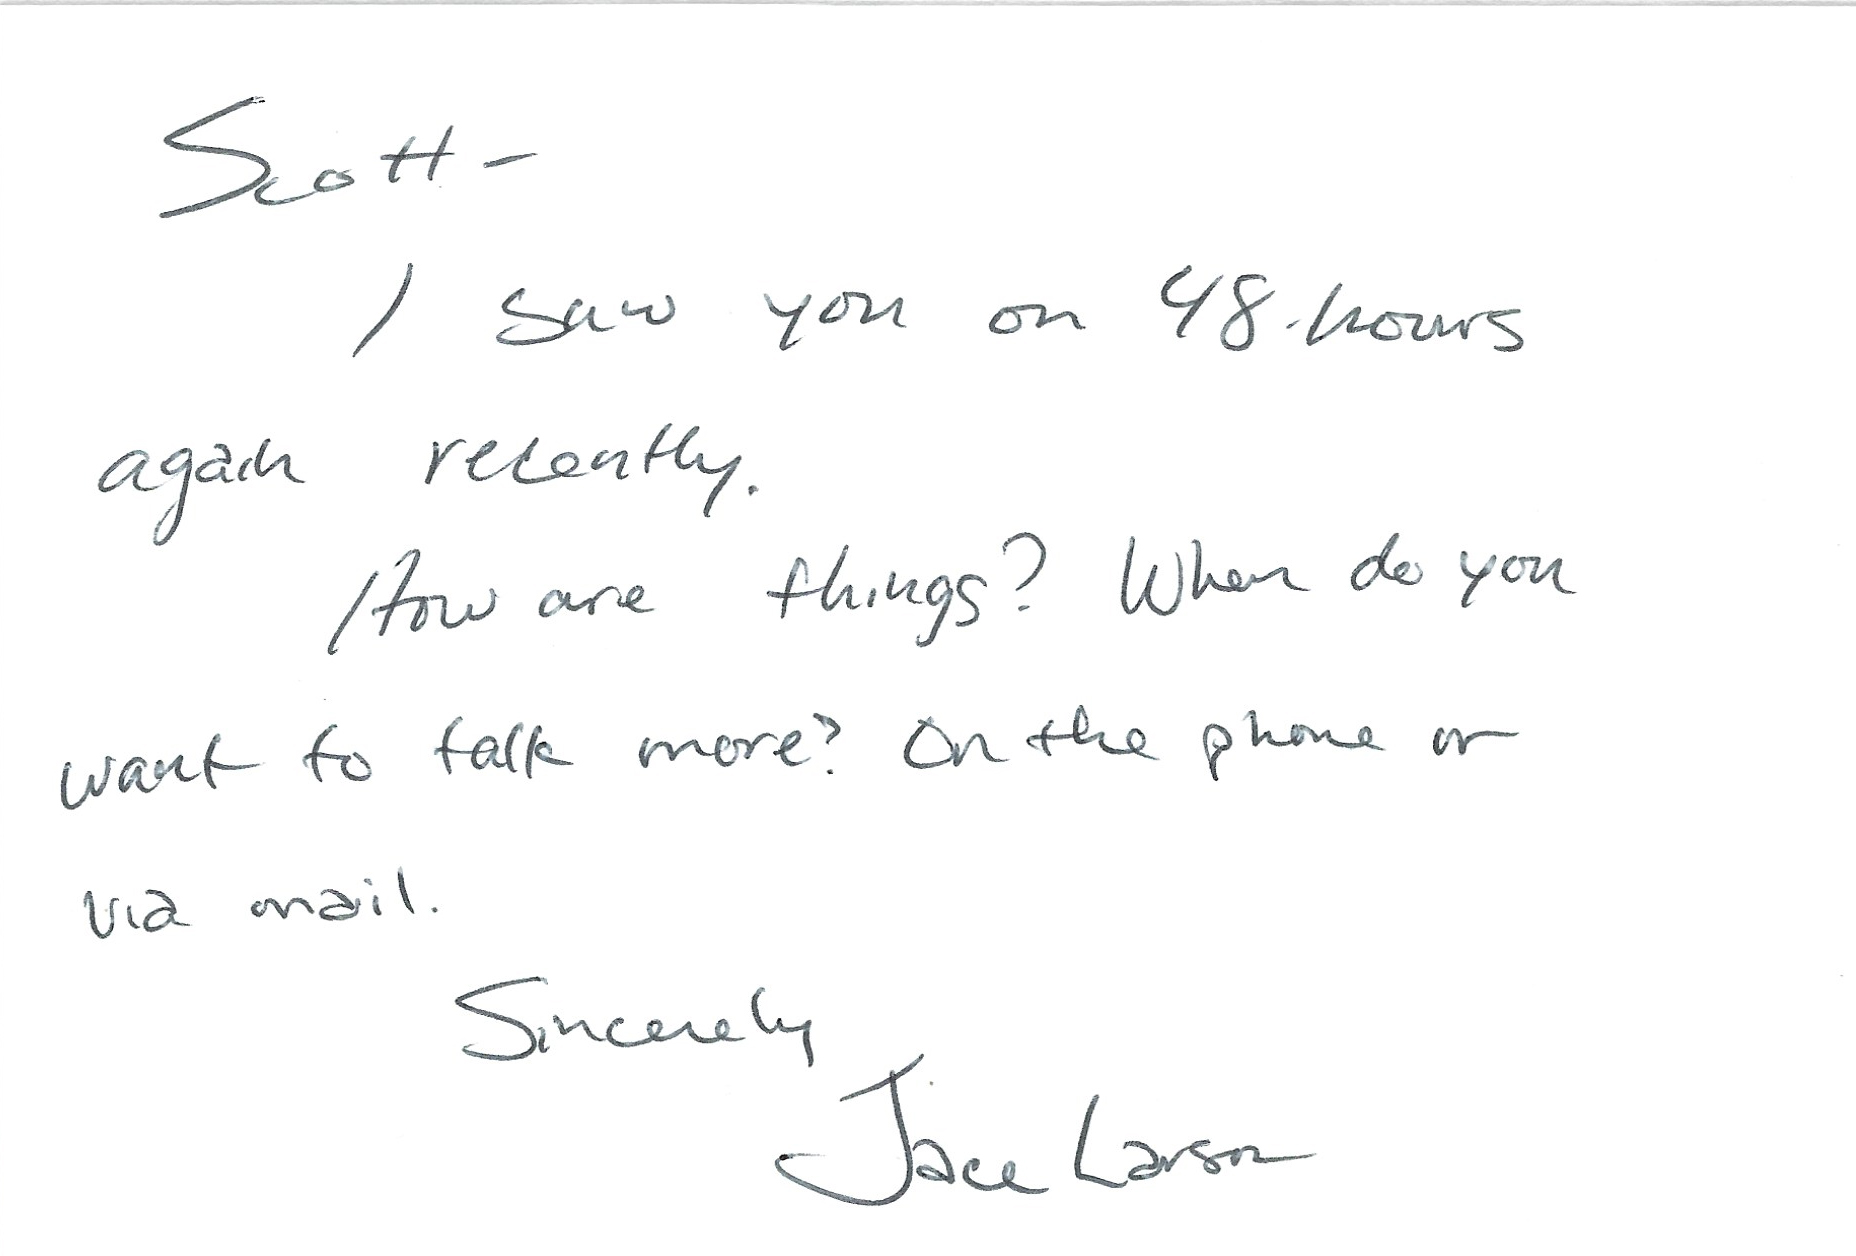 Scott -
I saw you on 48 hours
again recently.
How are things? When do you
want to talk more? On the phone or
via mail.
Sincerely
Jace Larson